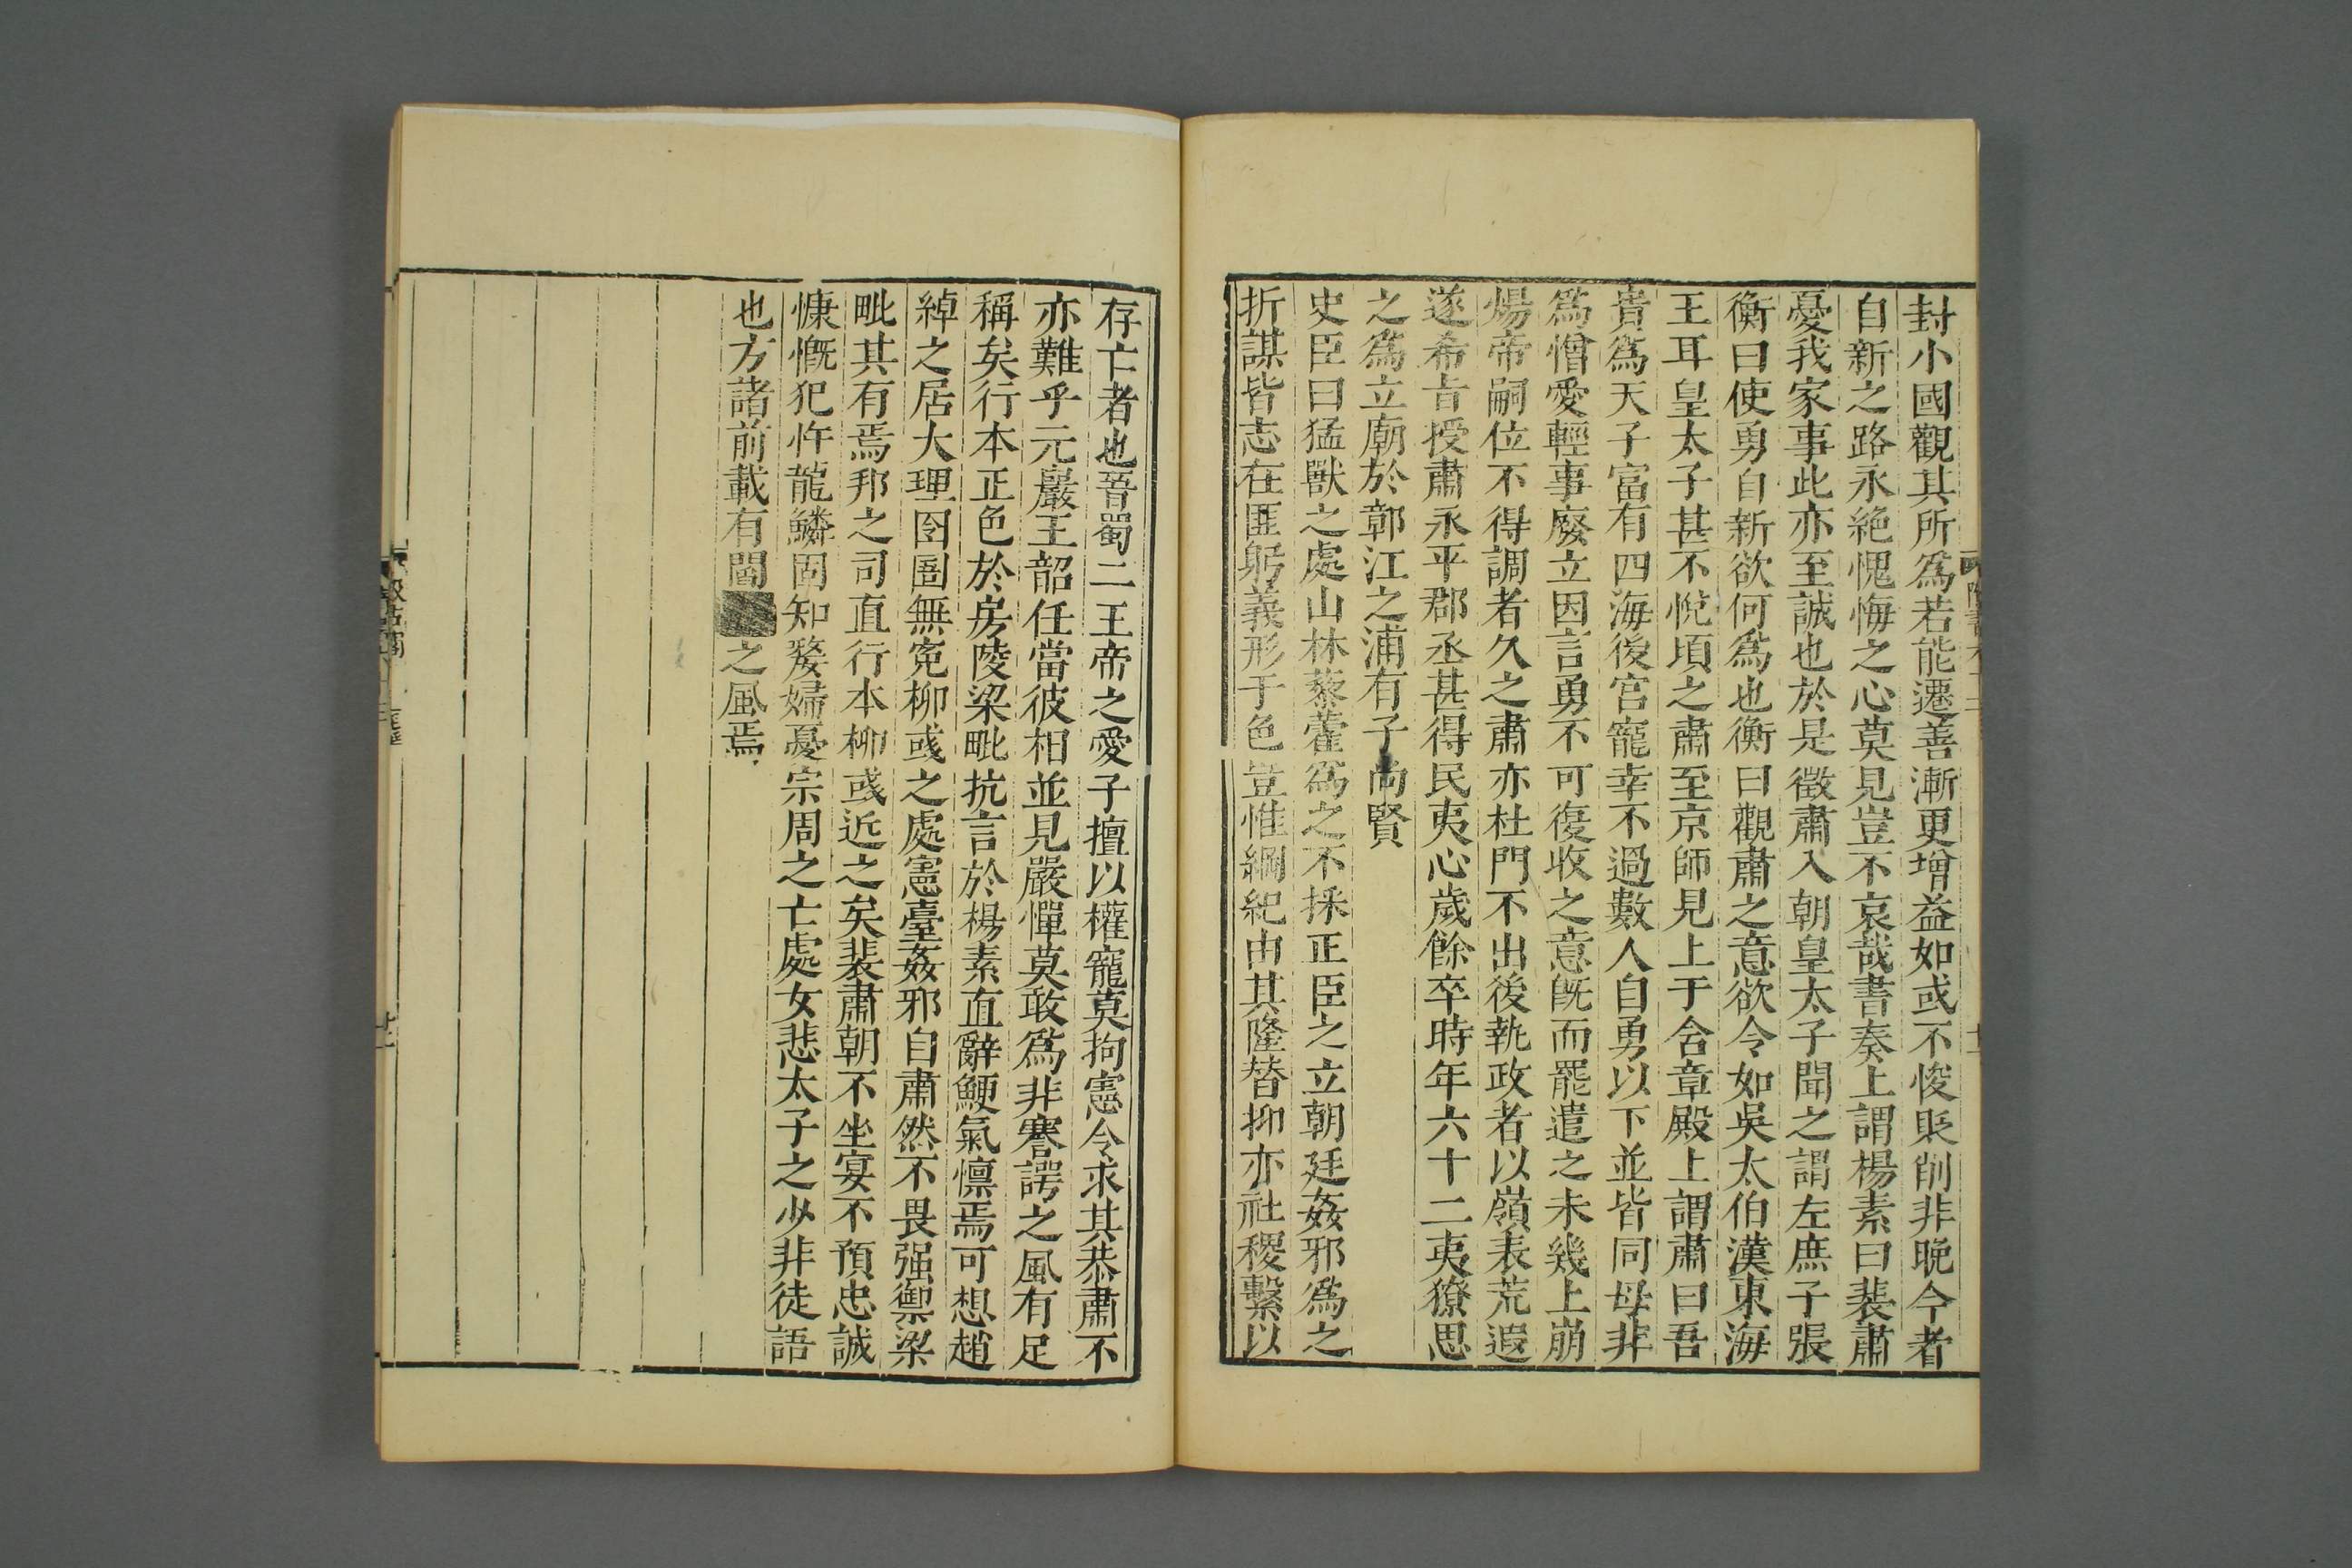 封小國觀其所爲若能遷善漸更增益如或不悛貶削非晚今者
自新之路永絕愧悔之心莫見豈不哀哉書奏上謂楊素曰裴肅
憂我家事此亦至誠也於是徵肅入朝皇太子聞之謂左庶子張
衡曰使勇自新欲何爲也衡曰觀肅之意欲令如吳太伯漢東海
王耳皇太子甚不悅頃之肅至京師見上于含章殿上謂肅曰吾
貴爲天子富有四海後宮寵幸不過數人自勇以下並皆同母非
爲憎愛輕事廢立因言勇不可復收之意旣而罷遣之未幾上崩
煬帝嗣位不得調者久之肅亦杜門不出後執政者以嶺表荒遐
遂希旨授肅永平郡丞甚得民夷心歲餘卒時年六十二夷獠思
之爲立廟於鄣江之浦有子尚賢
史臣曰猛獸之處山林藜藿爲之不採正臣之立朝廷姦邪爲之
折謀皆志在匪躬義形于色豈惟綱紀由其隆替抑亦社稷繫以
存亡者也晉蜀二王帝之愛子擅以權寵莫拘憲令求其恭肅不
亦難乎元巖王韶任當彼相並見嚴憚莫敢爲非謇諤之風有足
稱矣行本正色於房陵梁毗抗言於楊素直辭鯁氣懍焉可想趙
綽之居大理囹圄無寃柳彧之處憲臺姦邪自肅然不畏强禦梁
毗其有焉邦之司直行本柳彧近之矣裴肅朝不坐宴不預忠誠
慷慨犯忤龍鱗固知嫠婦憂宗周之亡處女悲太子之少非徒語
也方諸前載有閻之風焉